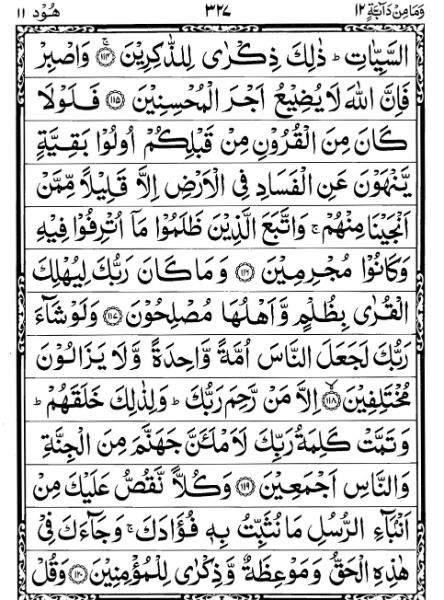 وَمَا مِنْ دَآبَّةٍ ١٢ ٣٢٧ هُوْد ١١
السَّيِّاٰتِ ؕ ذٰلِكَ ذِكْرٰى لِلذّٰكِرِيْنَ ۚ﴿۱۱۴﴾ وَاصْبِرْ
فَاِنَّ اللّٰهَ لَا يُضِيْعُ اَجْرَ الْمُحْسِنِيْنَ ﴿۱۱۵﴾ فَلَوْلَا
كَانَ مِنَ الْقُرُوْنِ مِنْ قَبْلِكُمْ اُولُوْا بَقِيَّةٍ
يَّنْهَوْنَ عَنِ الْفَسَادِ فِى الْاَرْضِ اِلَّا قَلِيْلًا مِّمَّنْ
اَنْجَيْنَا مِنْهُمْ ۚ وَاتَّبَعَ الَّذِيْنَ ظَلَمُوْا مَاۤ اُتْرِفُوْا فِيْهِ
وَكَانُوْا مُجْرِمِيْنَ ﴿۱۱۶﴾ وَمَا كَانَ رَبُّكَ لِيُهْلِكَ
الْقُرٰى بِظُلْمٍ وَّاَهْلُهَا مُصْلِحُوْنَ ﴿۱۱۷﴾ وَلَوْ شَآءَ
رَبُّكَ لَجَعَلَ النَّاسَ اُمَّةً وَّاحِدَةً وَّلَا يَزَالُوْنَ
مُخْتَلِفِيْنَ ۙ﴿۱۱۸﴾ اِلَّا مَنْ رَّحِمَ رَبُّكَ ؕ وَلِذٰلِكَ خَلَقَهُمْ ؕ
وَتَمَّتْ كَلِمَةُ رَبِّكَ لَاَمْلَئَنَّ جَهَنَّمَ مِنَ الْجِنَّةِ
وَالنَّاسِ اَجْمَعِيْنَ ﴿۱۱۹﴾ وَكُلًّا نَّقُصُّ عَلَيْكَ مِنْ
اَنْۢبَآءِ الرُّسُلِ مَا نُثَبِّتُ بِهٖ فُؤَادَكَ ۚ وَجَآءَكَ فِىْ
هٰذِهِ الْحَقُّ وَمَوْعِظَةٌ وَّذِكْرٰى لِلْمُؤْمِنِيْنَ ﴿۱۲۰﴾ وَقُلْ